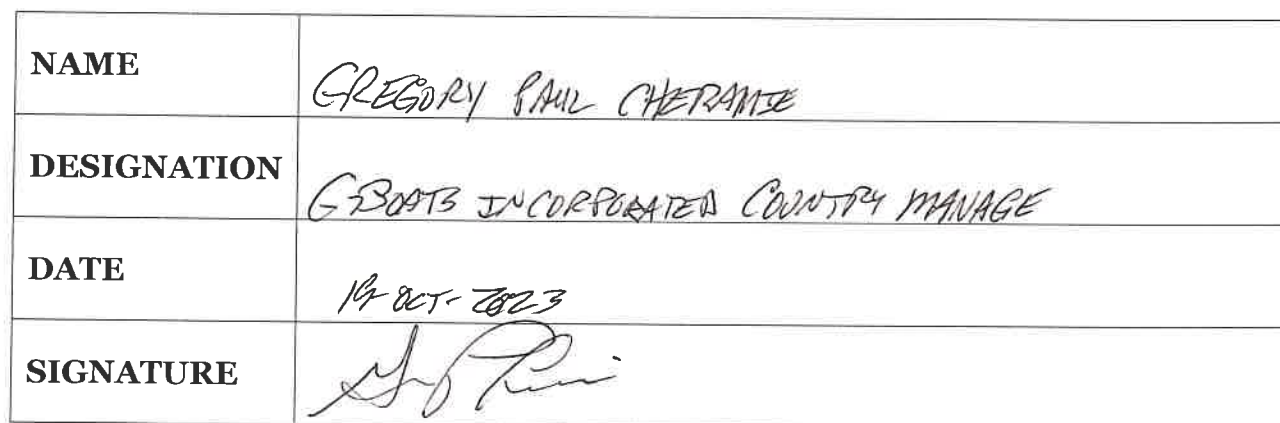 NAME
GREGORY PAUL CHERAMIE
DESIGNATION
G-BOATS INCORPORATED COUNTRY MANAGE
DATE
OCT-2023
SIGNATURE